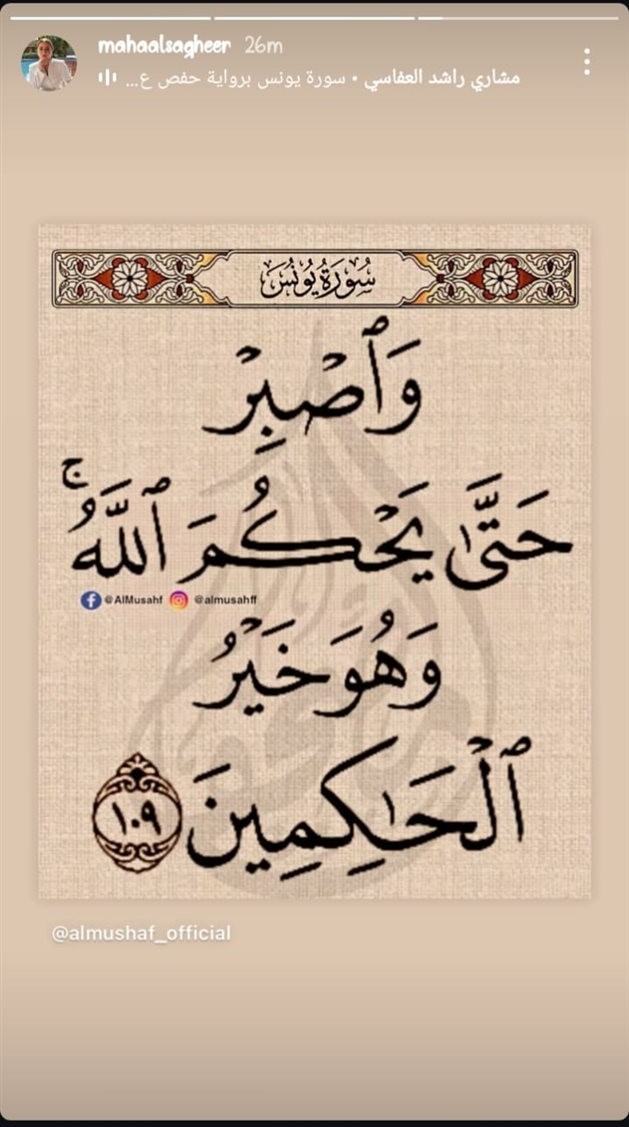 mahaalsagheer 26m
مشاري راشد العفاسي • سورة يونس برواية حفص ع...
سُورَةُ يُونُسَ
وَٱصْبِرْ
حَتَّىٰ يَحْكُمَ ٱللَّهُ ۚ
@AlMusahf @almusahff
وَهُوَ خَيْرُ
ٱلْحَـٰكِمِينَ ١٠٩
@almushaf_official